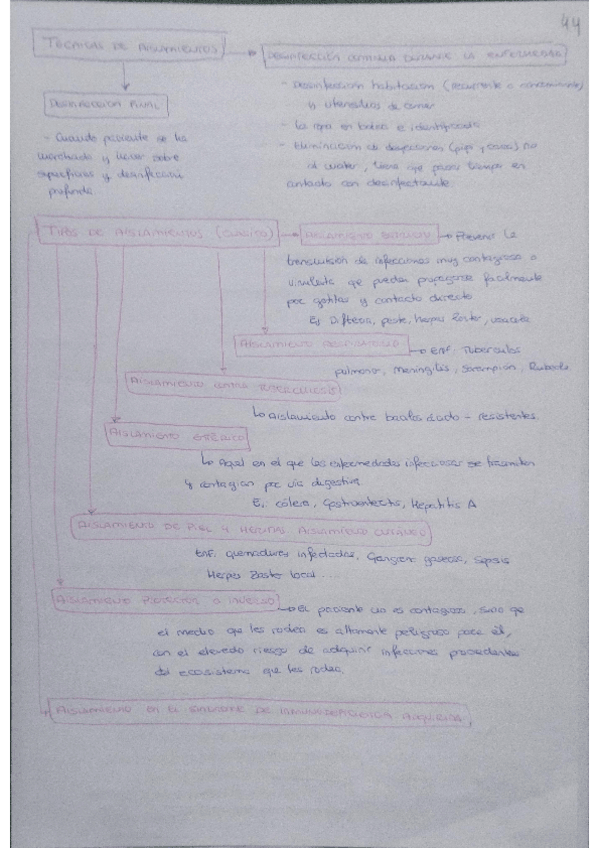 44
TECNICAS DE AISLAMIENTOS
DESINFECCIÓN CONTINUA DURANTE LA ENFERMEDAD
- Desinfección habitación (recurrente o concurrente)
y utensilios de comer
- La ropa en bolsas e identificada
- Eliminación de deyecciones (pipi y caca) no
al water, tiene que pasar tiempo en
contacto con desinfectante.
DESINFECCIÓN FINAL
- Cuando paciente se ha
marchado y llevar sobre
superficies y desinfección
profunda.
TIPOS DE AISLAMIENTOS (CLÁSICO)
AISLAMIENTO ESTRICTO → Prevenir la
transmisión de infecciones muy contagiosa o
virulenta que puedan propagarse facilmente
por gotitas y contacto directo
Ej Difteria, peste, herpes Zoster, varicela
AISLAMIENTO RESPIRATORIO → Enf. Tuberculosis
pulmonar, Meningitis, Sarampión, Rubeola.
AISLAMIENTO CONTRA TUBERCULOSIS
Aislamiento contra bacilos ácido - resistentes.
AISLAMIENTO ENTÉRICO
Aquel en el que las enfermedades infecciosas se trasmiten
y contagian por vía digestiva
Ej. cólera, Gastroenteritis, Hepatitis A
AISLAMIENTO DE PIEL Y HERIDAS. AISLAMIENTO CUTÁNEO
Enf. quemaduras infectadas, Gangrena gaseosa, Sepsis
Herpes Zoster local...
AISLAMIENTO PROTECTOR O INVERSO → El paciente no es contagioso, sino que
el medio que les rodea es altamente peligroso para él,
con el elevado riesgo de adquirir infecciones procedentes
del ecosistema que les rodea.
AISLAMIENTO EN EL SINDROME DE INMUNODEFICIENCIA ADQUIRIDA